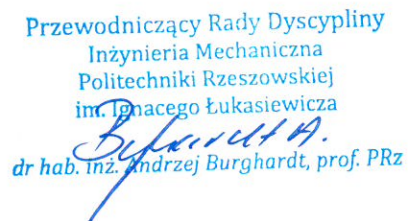 Przewodniczący Rady Dyscypliny
Inżynieria Mechaniczna
Politechniki Rzeszowskiej
im. Ignacego Łukasiewicza
dr hab. inż. Andrzej Burghardt, prof. PRz